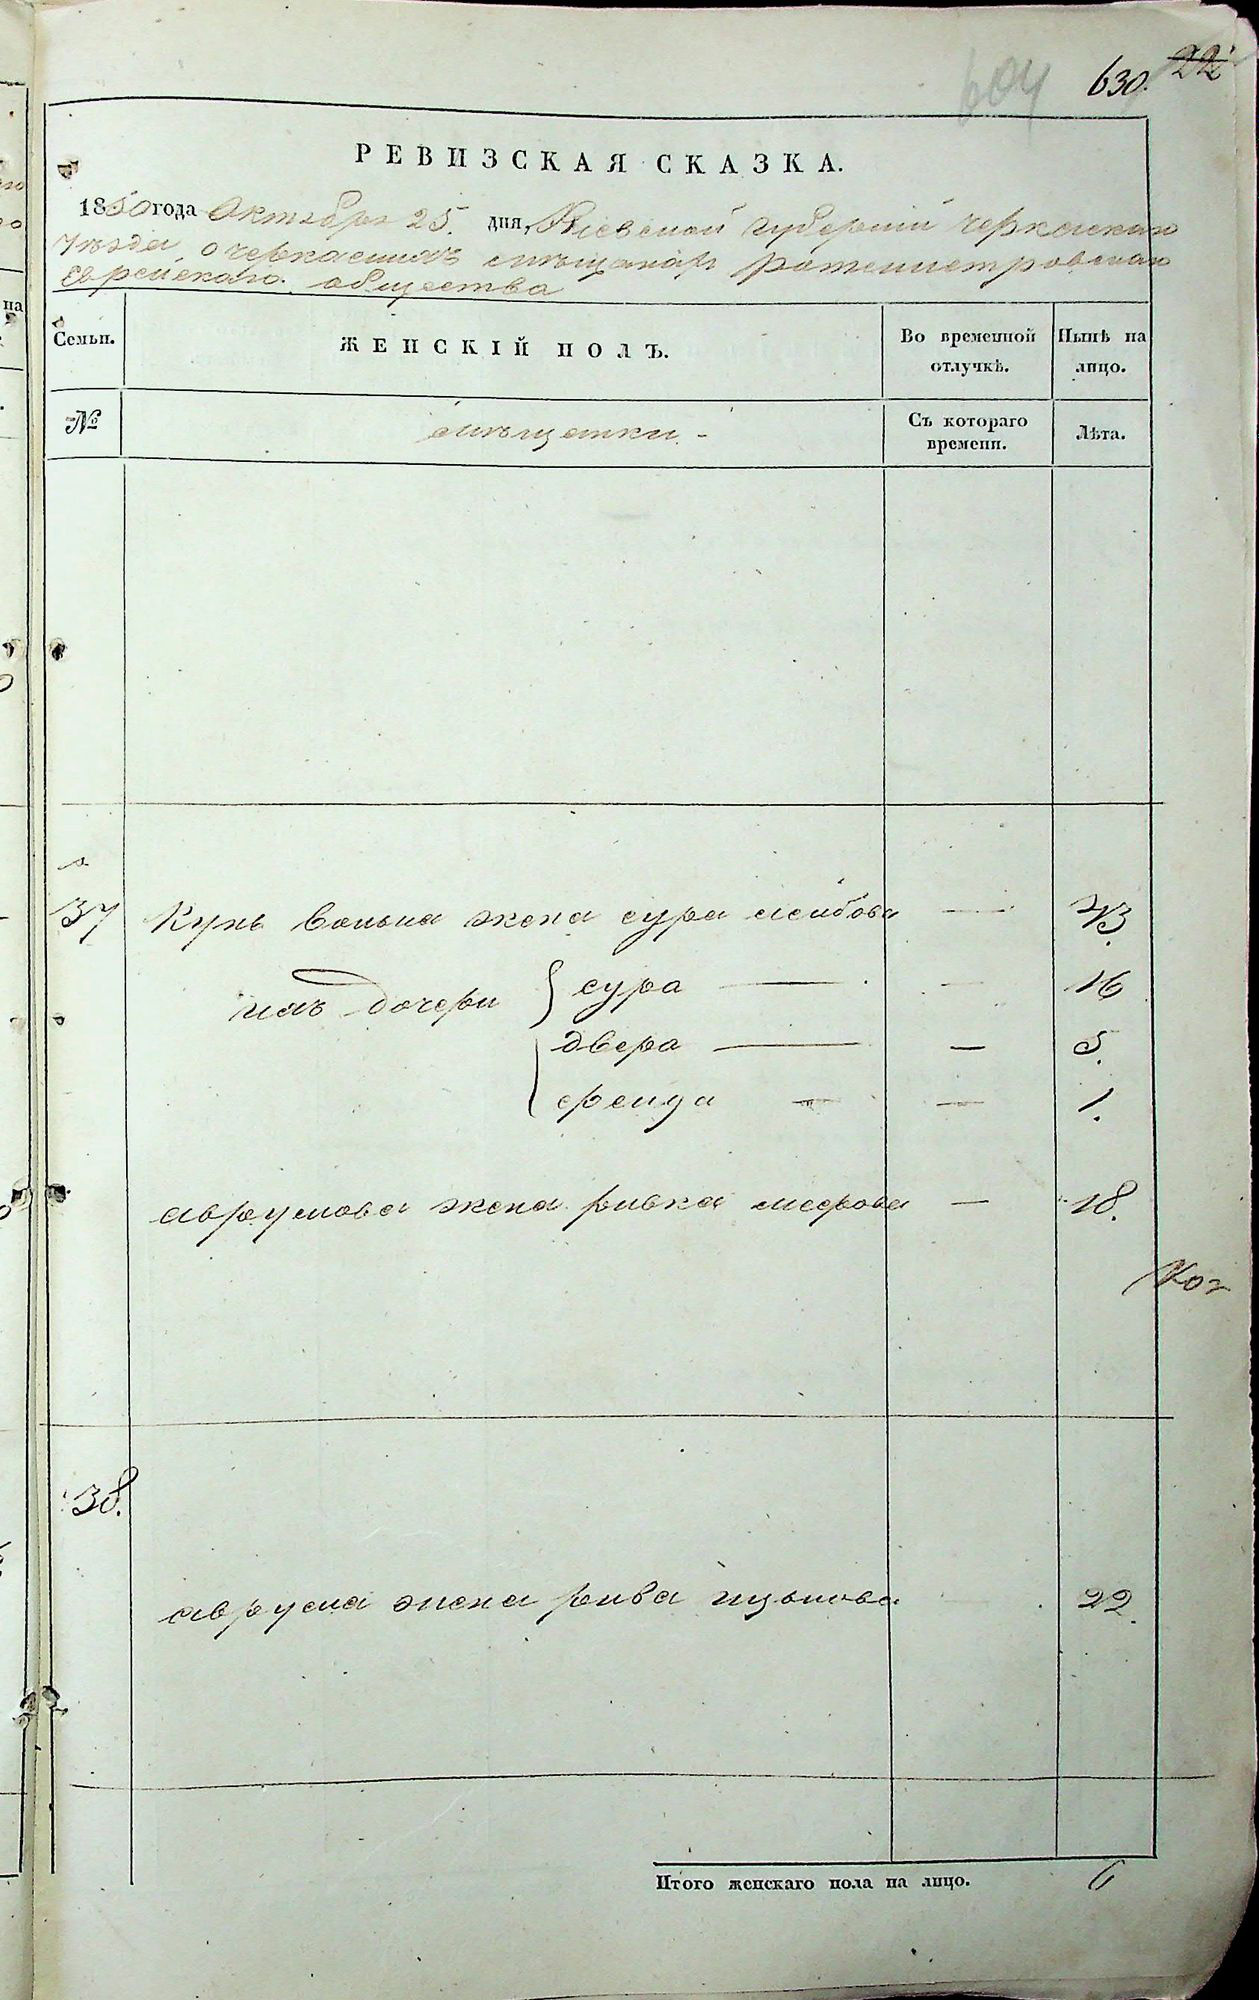 604 630. 22
РЕВИЗСКАЯ СКАЗКА.
1850 года Октября 25. дня, Кіевской губерніи черкаскаго
уѣзда о черкаскихъ мѣщанахъ ротмистровскаго
Еврейскаго общества
Семьи.
ЖЕНСКІЙ ПОЛЪ.
Во временной отлучкѣ.
Нынѣ на лицо.
№
мѣщанки -
Съ котораго времени.
Лѣта.
37 жена сура лейбова — 43.
ихъ дочери { сура — — 16
двера — — 5.
фейга — — 1.
аврумова жена ривка меерова — 18.
38.
аврума жена рива 22.
Итого женскаго пола на лицо. 6